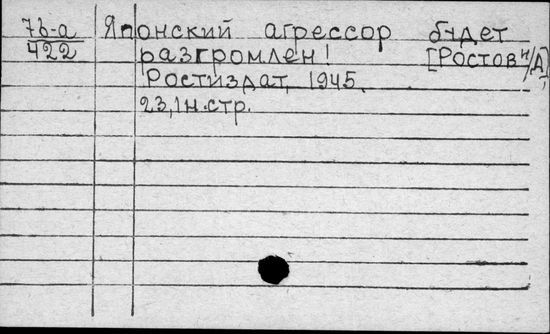 7b-a Японский агрессор будет
422 разгромлен! [Ростов н/Д]
Ростиздат, 1945.
23,1 н.стр.